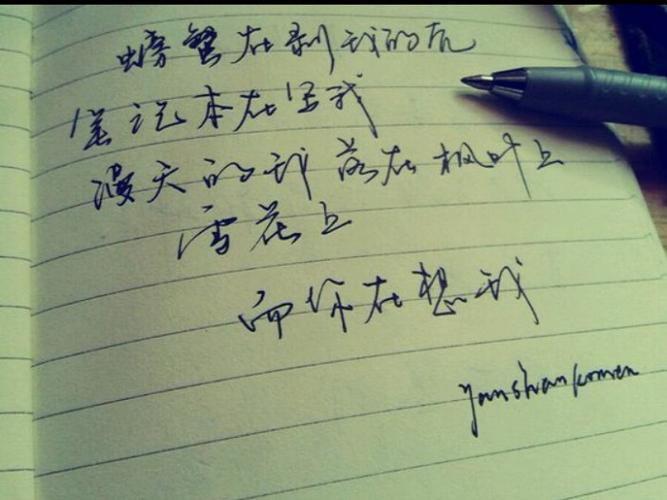 螃蟹在剥我的壳
笔记本在写我
漫天的我落在枫叶上
雪花上
而你在想我
yanshankomen